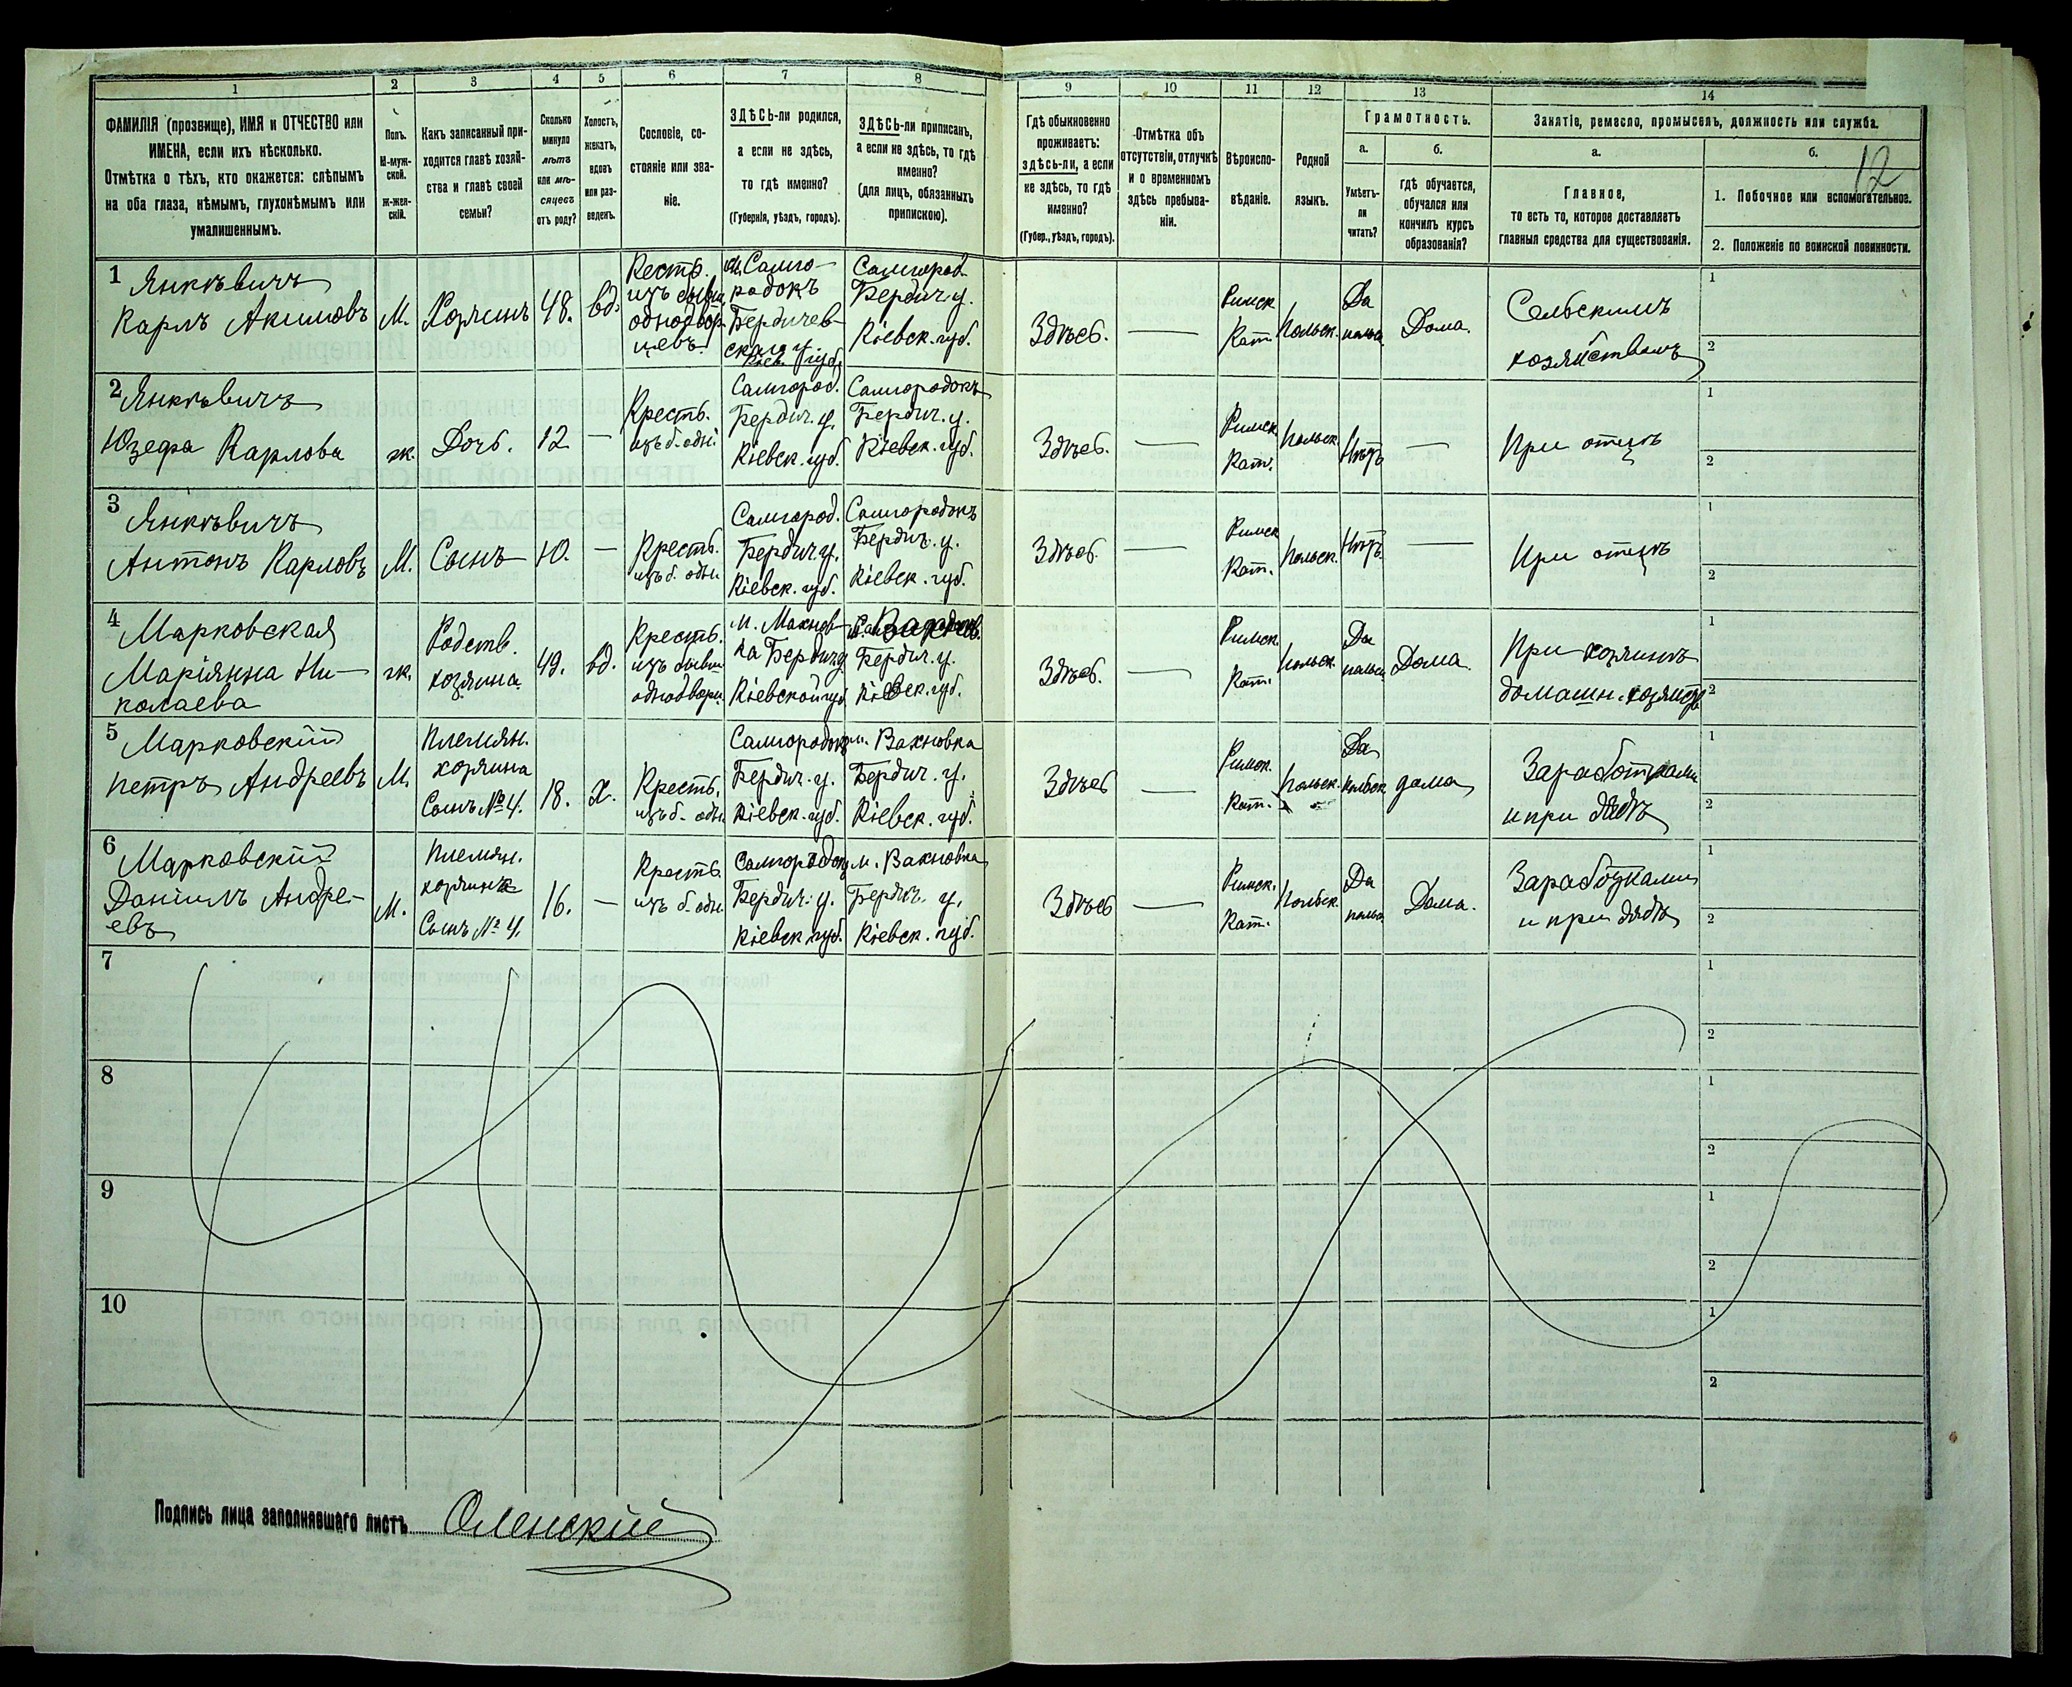 1 2 3 4 5 6 7 8 9 10 11 12 13 14
ФАМИЛІЯ (прозвище), ИМЯ и ОТЧЕСТВО или
ИМЕНА, если ихъ нѣсколько.
Отмѣтка о тѣхъ, кто окажется: слѣпымъ
на оба глаза, нѣмымъ, глухонѣмымъ или
умалишеннымъ.
Полъ.
М-муж-
ской.
Ж-жен-
скій.
Какъ записанный при-
ходится главѣ хозяй-
ства и главѣ своей
семьи?
Сколько
минуло
лѣтъ
или мѣ-
сяцевъ
отъ роду?
Холостъ,
женатъ,
вдовъ
или раз-
веденъ.
Сословіе, со-
стояніе или зва-
ніе.
ЗДѢСЬ-ли родился,
а если не здѣсь,
то гдѣ именно?
(Губернія, уѣздъ, городъ).
ЗДѢСЬ-ли приписанъ,
а если не здѣсь, то гдѣ
именно?
(для лицъ, обязанныхъ
припискою).
Гдѣ обыкновенно
проживаетъ:
здѣсь-ли, а если
не здѣсь, то гдѣ
именно?
(Губер., уѣздъ, городъ).
Отмѣтка объ
отсутствіи, отлучкѣ
и о временномъ
здѣсь пребыва-
ніи.
Вѣроиспо-
вѣданіе.
Родной
языкъ.
Грамотность.
а.
Умѣетъ-
ли
читать?
б.
гдѣ обучается,
обучался или
кончилъ курсъ
образованія?
Занятіе, ремесло, промыселъ, должность или служба.
а.
Главное,
то есть то, которое доставляетъ
главныя средства для существованія.
б.
12
1. Побочное или вспомогательное.
2. Положеніе по воинской повинности.
1
Янкѣвичъ
Карлъ Акимовъ
М.
Хозяинъ
48.
вд.
Крестъ.
изъ бывш.
однодвор-
цевъ.
м. Самго-
родокъ
Бердичев-
скаго у.
Кіев. губ.
Самгород.
Бердич. у.
Кіевск. губ.
Здѣсь.
—
Римск
Кат.
Польск.
Да
польс.
Дома.
Сельскимъ
хозяйствомъ
1
2
2
Янкѣвичъ
Юзефа Карлова
ж.
Дочь.
12
—
Крестъ.
изъ б. одн.
Самгород.
Бердич. у.
Кіевск. губ.
Самгородокъ
Бердич. у.
Кіевск. губ.
Здѣсь.
—
Римск.
Кат.
Польск.
Нѣтъ
—
При отцѣ
1
2
3
Янкѣвичъ
Антонъ Карловъ
М.
Сынъ
10.
—
Крестъ.
изъ б. одн.
Самгород.
Бердич. у.
Кіевск. губ.
Самгородокъ
Бердич. у.
Кіевск. губ.
Здѣсь.
—
Римск
Кат.
Польск.
Нѣтъ.
—
При отцѣ
1
2
4
Марковская
Маріянна Ни-
колаева
ж.
Родств.
хозяина.
49.
вд.
Крестъ.
изъ бывш.
однодворц.
м. Махнов-
ка Бердич. у.
Кіевской губ.
Бердич. у.
Кіевск. губ.
Здѣсь.
—
Римск.
Кат.
Польск.
Да
польск
Дома.
При хозяинѣ
домашн. хозяйств.
1
2
5
Марковскій
Петръ Андреевъ
М.
Племян.
хозяина
Сынъ № 4.
18.
Х.
Крестъ.
изъ б. одн.
Самгородокъ
Бердич. у.
Кіевск. губ.
м. Вахновка
Бердич. у.
Кіевск. губ.
Здѣсь
—
Римск.
Кат.
Польск.
Да
польск
дома
Заработками
и при дядѣ
1
2
6
Марковскій
Даніилъ Андре-
евъ
М.
Племян.
хозяина
Сынъ № 4.
16.
—
Крестъ.
изъ б. одн.
Самгородокъ
Бердич. у.
Кіевск. губ.
м. Вахновка
Бердич. у.
Кіевск. губ.
Здѣсь
—
Римск.
Кат.
Польск.
Да
польс
Дома.
Заработками
и при дядѣ
1
2
7
1
2
8
1
2
9
1
2
10
1
2
Подпись лица заполнявшаго листъ Оленскій